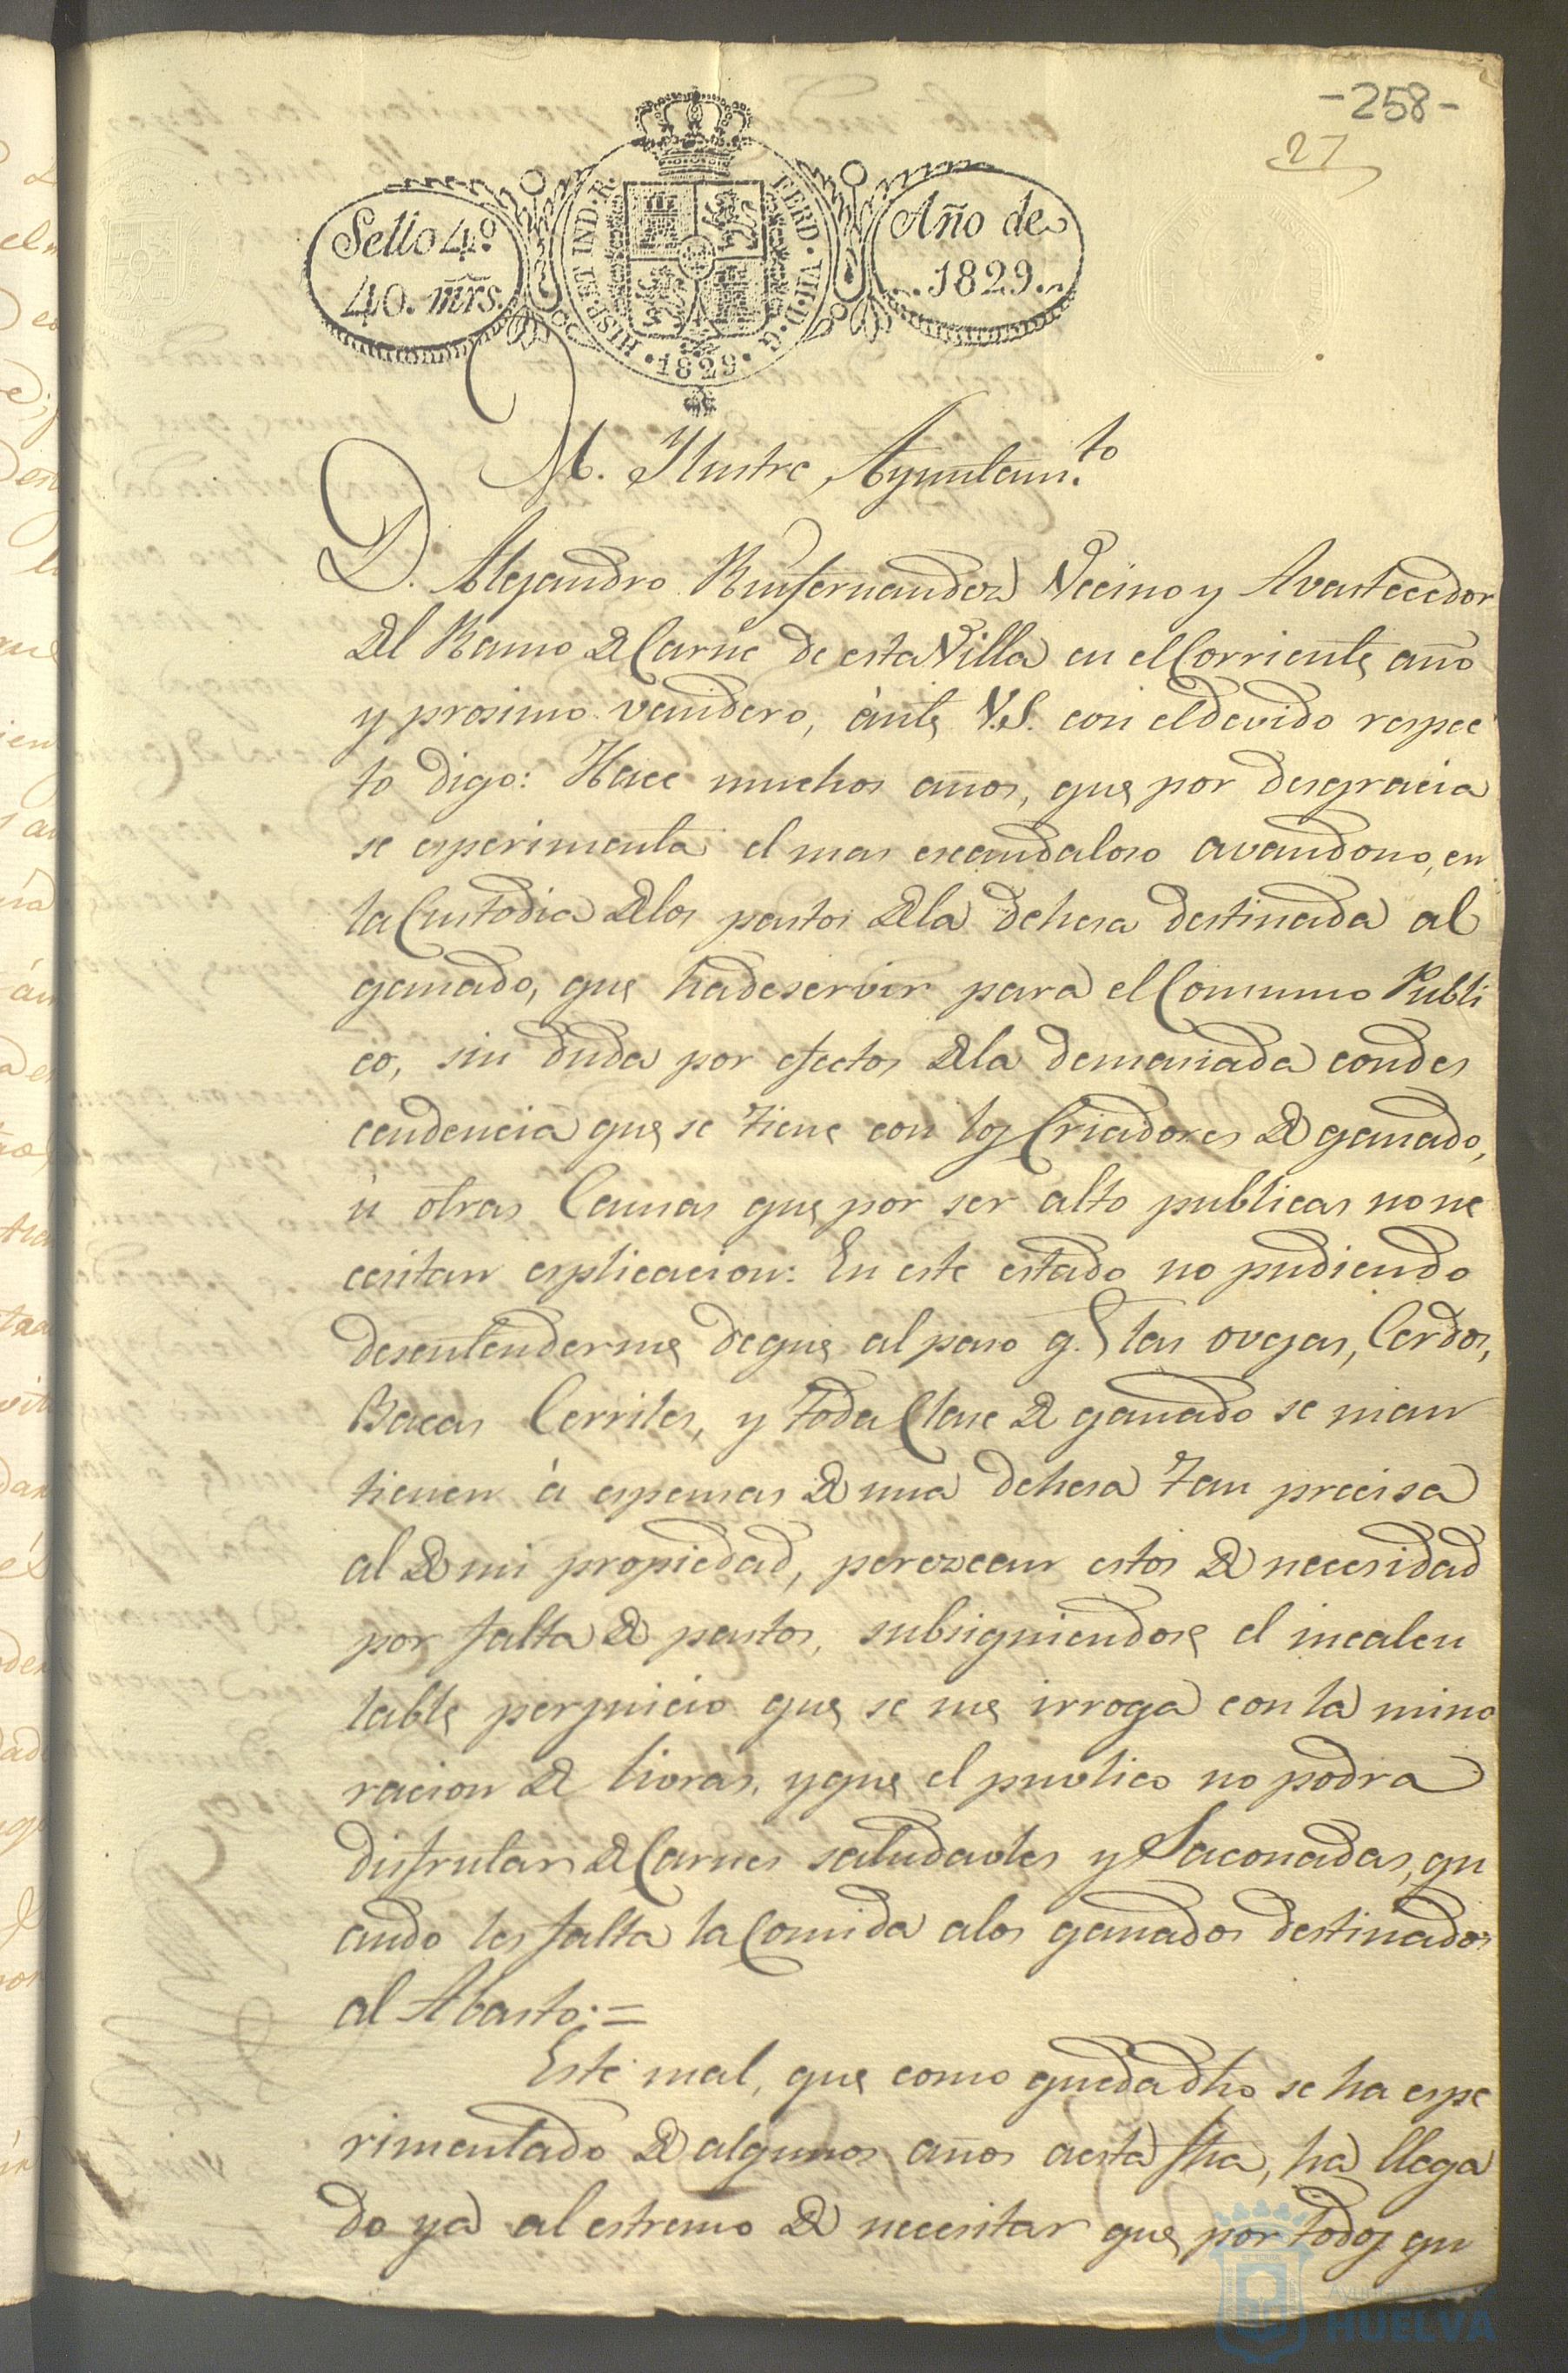 -258-
27
Sello 4º
40. mrs.
HISP. ET IND. R.
FERD. VII. D. G.
1829
Año de
1829.
M. Ilustre Ayuntam.to
D. Alejandro Ruifernandez Vecino y Avastecedor
del Ramo de Carne de esta Villa en el Corriente año
y prosimo venidero, ànte V.S. con el devido respec
to digo: Hace muchos años, que por desgracia
se esperimenta el mas escandaloso avandono, en
la Custodia de los pastos de la dehesa destinada al
ganado, que ha de servir para el Comsumo Publi
co, sin duda por efectos de la demasiada condes
cendencia que se tiene con los Criadores de ganado,
ù otras Causas que por ser alto publicas no ne
cesitan esplicacion: En este estado no pudiendo
desentenderme de que al paso q.e las ovejas, Cerdos,
Bacas Cerriles, y toda Clase de ganado se man
tienen à espensas de una dehesa tan precisa
al de mi propiedad, perezcan estos de necesidad
por falta de pastos, subsiguiendose el incalcu
lable perjuicio que se me irroga con la mino
racion de livras, y que el publico no podra
disfrutar de Carnes saludavles y Saconadas, qu
ando les falta la Comida a los ganados destinados
al Abasto. =
Este mal, que como queda dho se ha espe
rimentado de algunos años a esta fha, ha llega
do ya al estremo de necesitar que por todos qu
Ayuntamiento
HUELVA